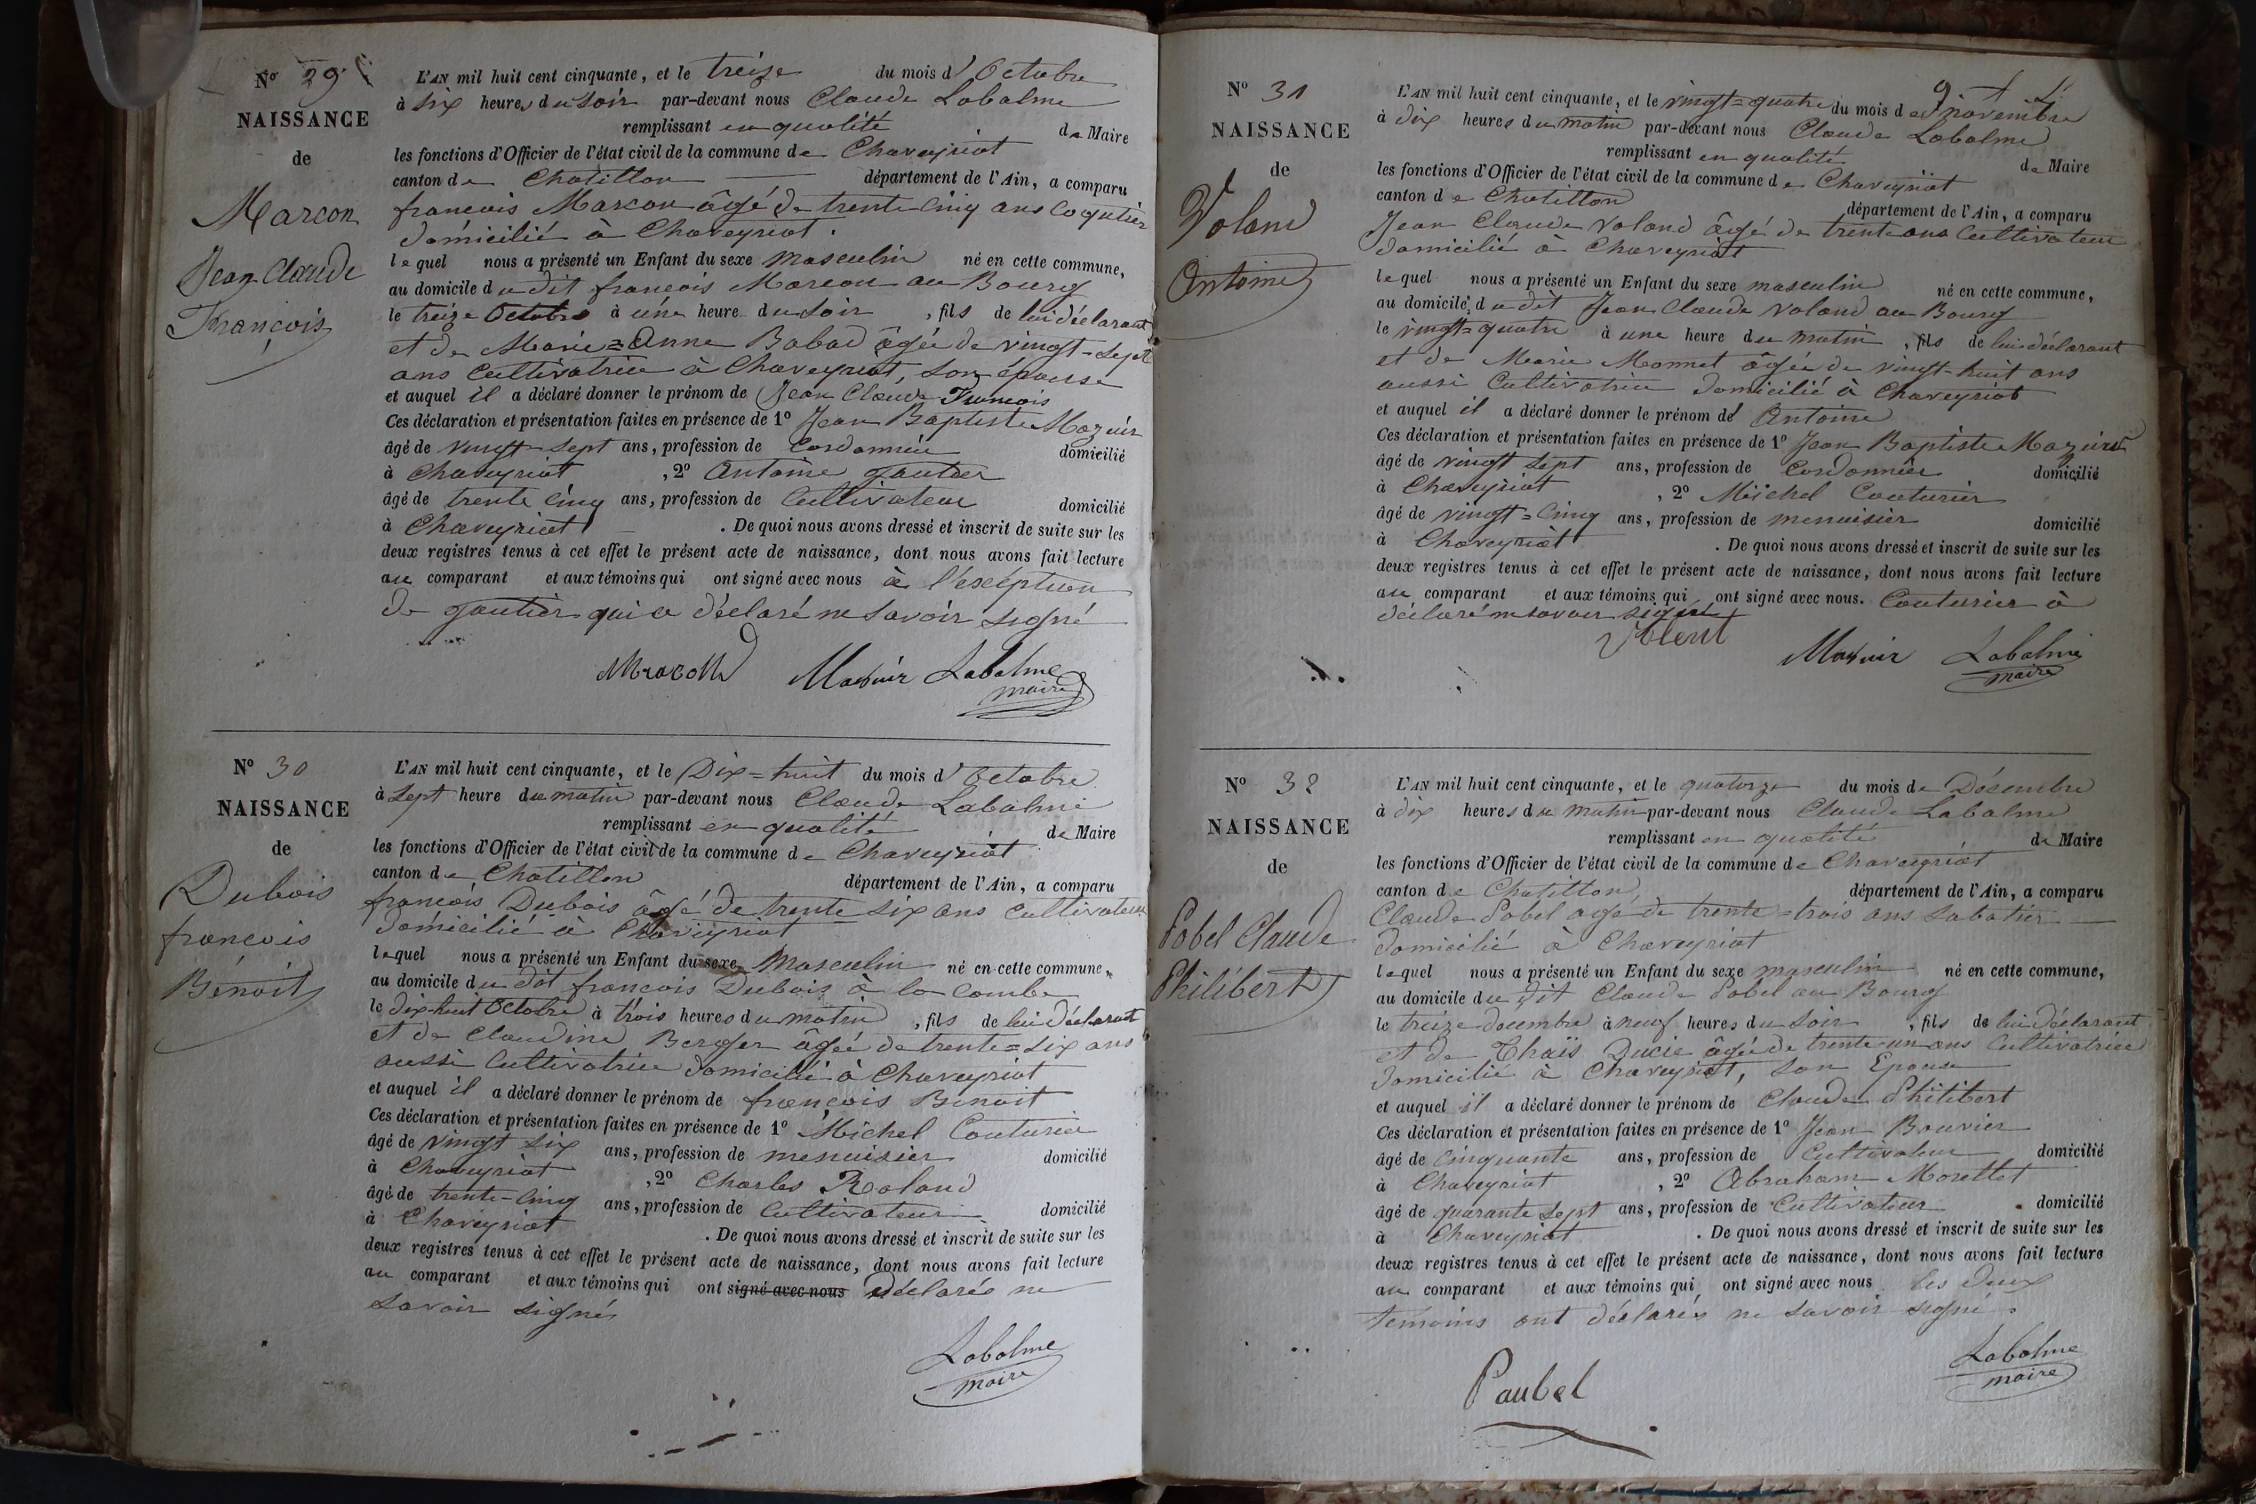 N° 29
NAISSANCE
de
Marcon
Jean Claude
François
L'AN mil huit cent cinquante, et le treize du mois d'Octobre
à six heures du soir par-devant nous Claude Labalme
remplissant en qualité de Maire
les fonctions d'Officier de l'état civil de la commune de Chaveyriat
canton de Chatillon département de l'Ain, a comparu
françois Marcon âgé de trente cinq ans coquetier
domicilié à Chaveyriat.
lequel nous a présenté un Enfant du sexe masculin né en cette commune,
au domicile dudit françois Marcon au Bourg
le treize Octobre à une heure du soir, fils de lui déclarant
et de Marie=Anne Babad âgée de vingt=sept
ans Cultivatrice à Chaveyriat, son épouse
et auquel il a déclaré donner le prénom de Jean Claude François
Ces déclaration et présentation faites en présence de 1° Jean Baptiste Mazuir
âgé de vingt sept ans, profession de Cordonnier domicilié
à Chaveyriat, 2° Antoine gautier
âgé de trente cinq ans, profession de Cultivateur domicilié
à Chaveyriat. De quoi nous avons dressé et inscrit de suite sur les
deux registres tenus à cet effet le présent acte de naissance, dont nous avons fait lecture
au comparant et aux témoins qui ont signé avec nous à l'exception
de gautier qui a déclaré ne savoir signé
Mazuir Labalme
maire
N° 30
NAISSANCE
de
Dubois
françois
Bénoit
L'AN mil huit cent cinquante, et le Dix=huit du mois d'Octobre
à sept heure du matin par-devant nous Claude Labalme
remplissant en qualité de Maire
les fonctions d'Officier de l'état civil de la commune de Chaveyriat
canton de Chatillon département de l'Ain, a comparu
françois Dubois âgé de trente six ans cultivateur
domicilié à Chaveyriat
lequel nous a présenté un Enfant du sexe Masculin né en cette commune,
au domicile du dit françois Dubois à la Combe
le dix-huit Octobre à trois heures du matin, fils de lui déclarant
et de Claudine Berger âgée de trente=six ans
aussi Cultivatrice domicilié à Chaveyriat
et auquel il a déclaré donner le prénom de françois Benoit
Ces déclaration et présentation faites en présence de 1° Michel Couturier
âgé de vingt six ans, profession de menuisier domicilié
à Chaveyriat, 2° Charles Roland
âgé de trente-cinq ans, profession de Cultivateur domicilié
à Chaveyriat. De quoi nous avons dressé et inscrit de suite sur les
deux registres tenus à cet effet le présent acte de naissance, dont nous avons fait lecture
au comparant et aux témoins qui ont signé avec nous déclarés ne
savoir signés
Labalme
maire
N° 31
NAISSANCE
de
Voland
Antoine
L'AN mil huit cent cinquante, et le vingt=quatre du mois de novembre
à dix heures du matin par-devant nous Claude Labalme
remplissant en qualité de Maire
les fonctions d'Officier de l'état civil de la commune de Chaveyriat
canton de Chatillon département de l'Ain, a comparu
Jean Claude Voland âgé de trente ans Cultivateur
domicilié à Chaveyriat
lequel nous a présenté un Enfant du sexe masculin né en cette commune,
au domicile du dit Jean Claude Voland au Bourg
le vingt=quatre à une heure du matin, fils de lui déclarant
et de Marie Monnet âgée de vingt-huit ans
aussi Cultivatrice domicilié à Chaveyriat
et auquel il a déclaré donner le prénom de Antoine
Ces déclaration et présentation faites en présence de 1° Jean Baptiste Mazuir
âgé de vingt sept ans, profession de Cordonnier domicilié
à Chaveyriat, 2° Michel Couturier
âgé de vingt=cinq ans, profession de menuisier domicilié
à Chaveyriat. De quoi nous avons dressé et inscrit de suite sur les
deux registres tenus à cet effet le présent acte de naissance, dont nous avons fait lecture
au comparant et aux témoins qui ont signé avec nous. Couturier à
déclaré ne savoir signé
Mazuir Labalme
maire
N° 32
NAISSANCE
de
Pobel Claude
Philibert
L'AN mil huit cent cinquante, et le quatorze du mois de Décembre
à dix heures du matin par-devant nous Claude Labalme
remplissant en qualité de Maire
les fonctions d'Officier de l'état civil de la commune de Chaveyriat
canton de Chatillon, département de l'Ain, a comparu
Claude Pobel agé de trente=trois ans sabotier
domicilié à Chaveyriat
lequel nous a présenté un Enfant du sexe masculin né en cette commune,
au domicile du dit Claude Pobel au Bourg
le treize décembre à neuf heures du soir, fils de lui déclarant
et de Thaïs Ducie âgée de trente un ans Cultivatrice
domicilié à Chaveyriat, son Epouse
et auquel il a déclaré donner le prénom de Claude Philibert
Ces déclaration et présentation faites en présence de 1° Jean Bouvier
âgé de cinquante ans, profession de Cultivateur domicilié
à Chaveyriat, 2° Abraham Morellet
âgé de quarante sept ans, profession de Cultivateur domicilié
à Chaveyriat. De quoi nous avons dressé et inscrit de suite sur les
deux registres tenus à cet effet le présent acte de naissance, dont nous avons fait lecture
au comparant et aux témoins qui ont signé avec nous les deux
témoins ont déclarés ne savoir signé.
Paubel
Labalme
maire